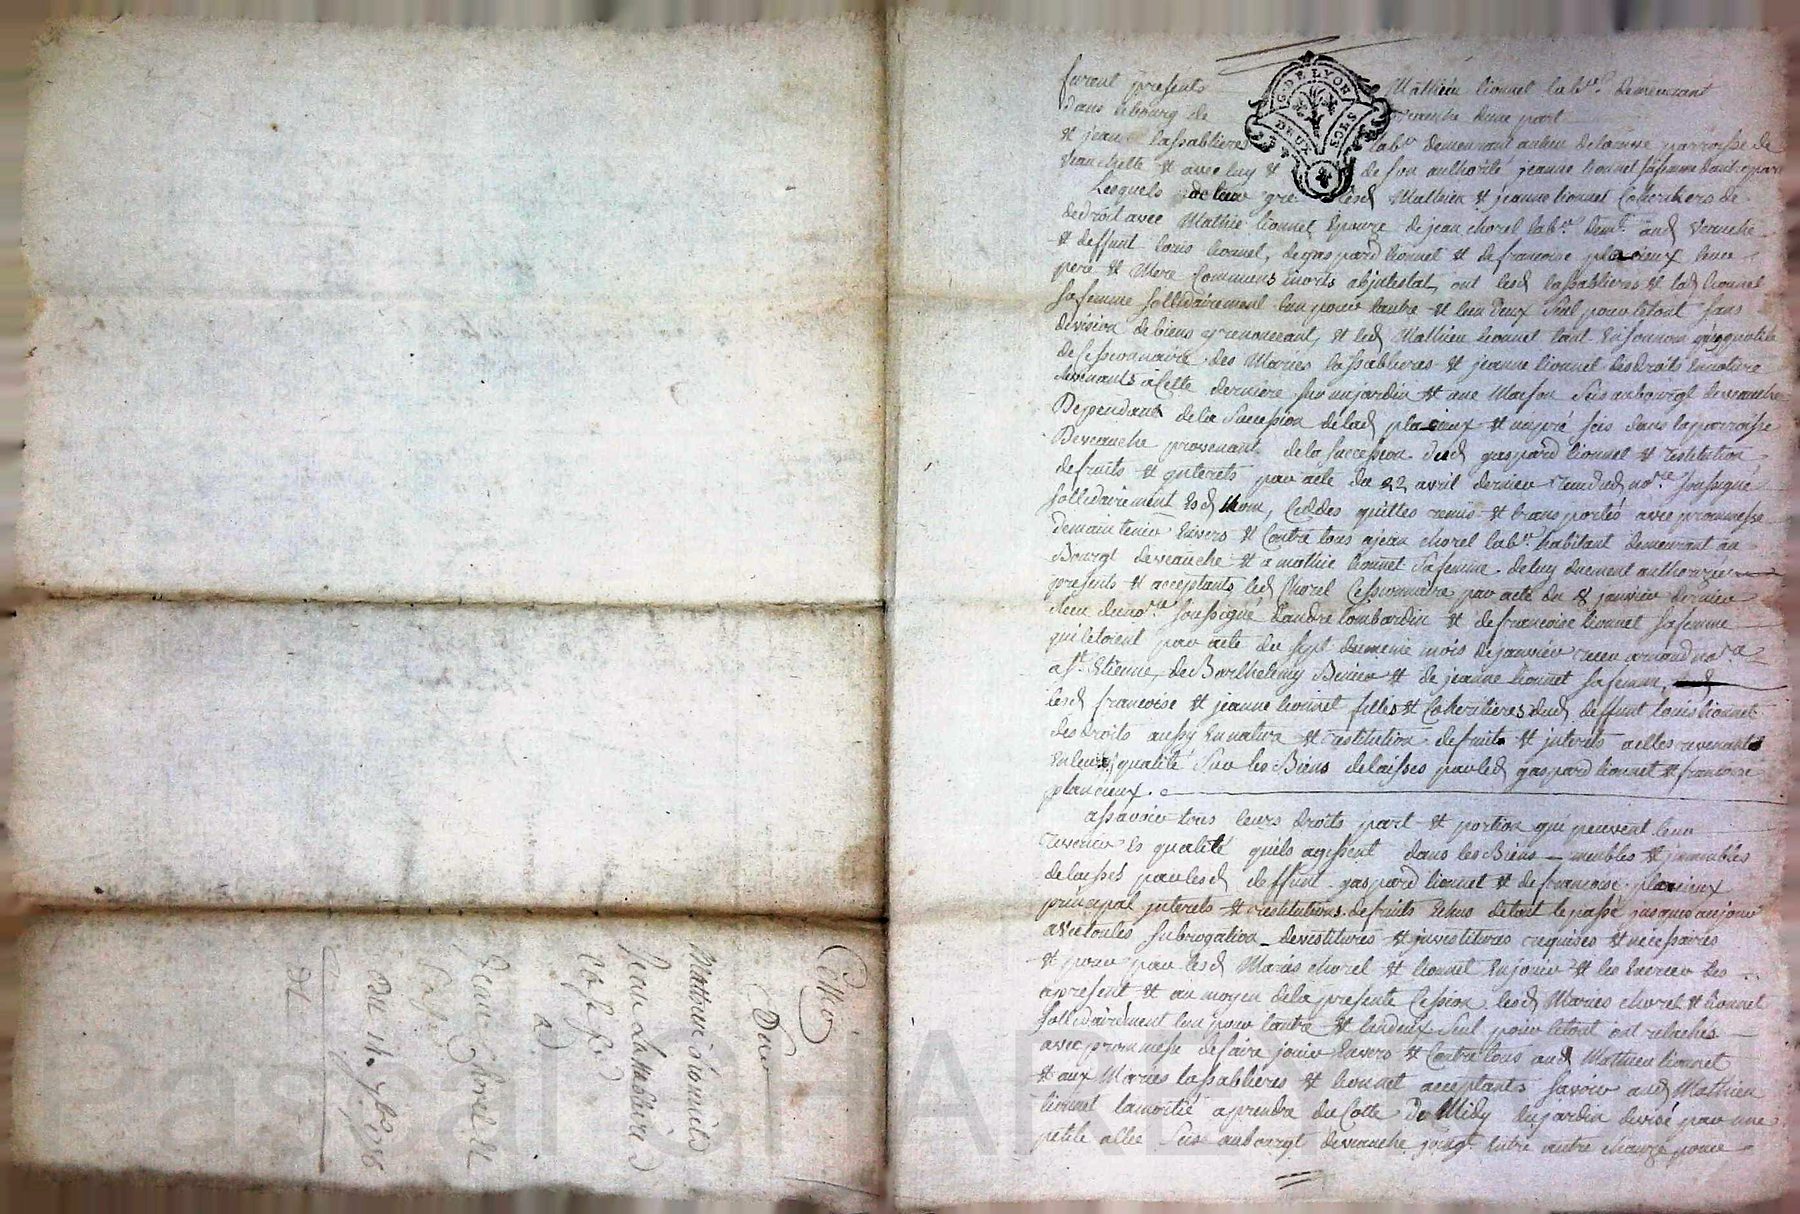 furent presents Mathieu lionnet lab.r demeurant
dans le bourg de veauche dune part
G. DE LYON
DEUX SOLS
& jean lassablieres lab.r demeurant au lieu de parroisse de
veauchette & avec luy & de son authorité jeanne lionnet sa femme dautre part
Lesquels de leur gré lesd Mathieu & jeanne lionnet Coheritiers de
de droit avec Mathie lionnet Epouze de jean chorel lab.r dem.t aud veauche
& deffunt louis lionnet, de gaspard lionnet & de francoise planieux leur
pere & Mere Communs morts abjntestat, ont lesd lassablieres & lad lionnet
sa femme sollidairement lun pour lautre & lun deux seul pour le tout sans
division de biens y renoncant, & led Mathieu lionnet tant en son nom qu'en qualité
de Cessionnaire des Maries lassablieres & jeanne lionnet des droits en nature
revenants a Cette derniere sur un jardin & une Maison Scis au bourgt de veauche
Dependant de la Succession de lad planieux & un pré scis dans la parroisse
De veauche provenant de la succession dud gaspard lionnet & restitution
de fruits & jnterets par acte du 22 avril dernier rendu no.re soussigné
sollidairement esd nom, Ceddés quittés remis & transportés avec promesse
de maintenir Envers & Contre tous a jean chorel lab.r habitant demeurant au
Bourgt de veauche & a mathie lionnet sa femme de luy duement authorizée
presents & acceptants led Chorel Cessionnaire par acte du 8 janvier dernier
recu dud no.re soussigné dandré lombardin & de francoise lionnet sa femme
qui letoient par acte du sept du meme mois de janvier recu arnaud no.re
a S.t Etienne, de Barthelemy & de jeanne lionnet sa femme,
lesd francoise & jeanne lionnet filles & Coheritieres dud deffunt louis lionnet
des droits aussy en nature & restitution de fruits & jnterets a elles revenants
en leurs qualité Sur les Biens delaisses par led gaspard lionnet & francoise
planieux.
assavoir tous leurs droits part & portion qui peuvent leur
revenir es qualité quils agissent dans les Biens meubles & jmmeubles
delaissés par lesd deffunt gaspard lionnet & de francoise planieux
principal jnterets & restitutions de fruits Echus de tout le passé jusques aujour
avec toutes subrogation devestitures & jnvestitures requises & necessaires
& pour par lesd Mariés chorel & lionnet en jouir & les Exercer des
apresent & au moyen de la presente Cession lesd Mariés chorel & lionnet
sollidairement lun pour lautre & lun deux Seul pour le tout ont relachés
avec promesse de faire jouir Envers & Contre tous aud Mathieu lionnet
& aux Mariés lassablieres & lionnet acceptants savoir aud Mathieu
lionnet la moitié a prendre du Cotté de Midy du jardin divisé par une
petite allée Scis au bourgt de veauche joingt entre autre chauze pour
Cession
Pour
Mathieu Lionnet &
Jean Lassabliere &
sa fe
a
Jean Chorel &
sa fe
Du 14 7bre 1776
Pascal CHAREY